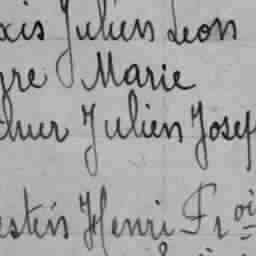 xis Julien Leon
yre Marie
thur Julien Josep
estin Henri Fr oi